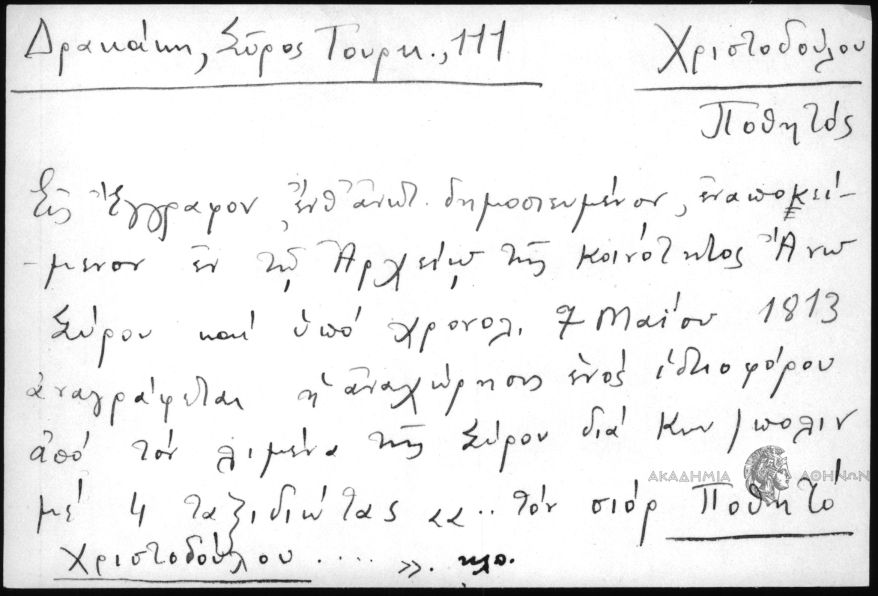 Δρακάκη, Σύρος Τουρκ., 111
Χριστοδούλου
Ποθητός
Εἰς Ἔγγραφον ἐνθ' ἀνωτ. δημοσιευμένον, ἐναποκεί-
-μενον ἐν τῷ Ἀρχείῳ τῆς Κοινότητος Ἄνω
Σύρου καί ὑπό χρονολ. 7 Μαΐου 1813
ἀναγράφεται ἡ ἀναχώρησις ἑνός ἱστιοφόρου
ἀπό τόν λιμένα τῆς Σύρου διά Κων/πολιν
μέ 4 ταξιδιώτας «.. τόν σιόρ Ποθητό
Χριστοδούλου .... ». κλπ.
ΑΚΑΔΗΜΙΑ ΑΘΗΝΩΝ